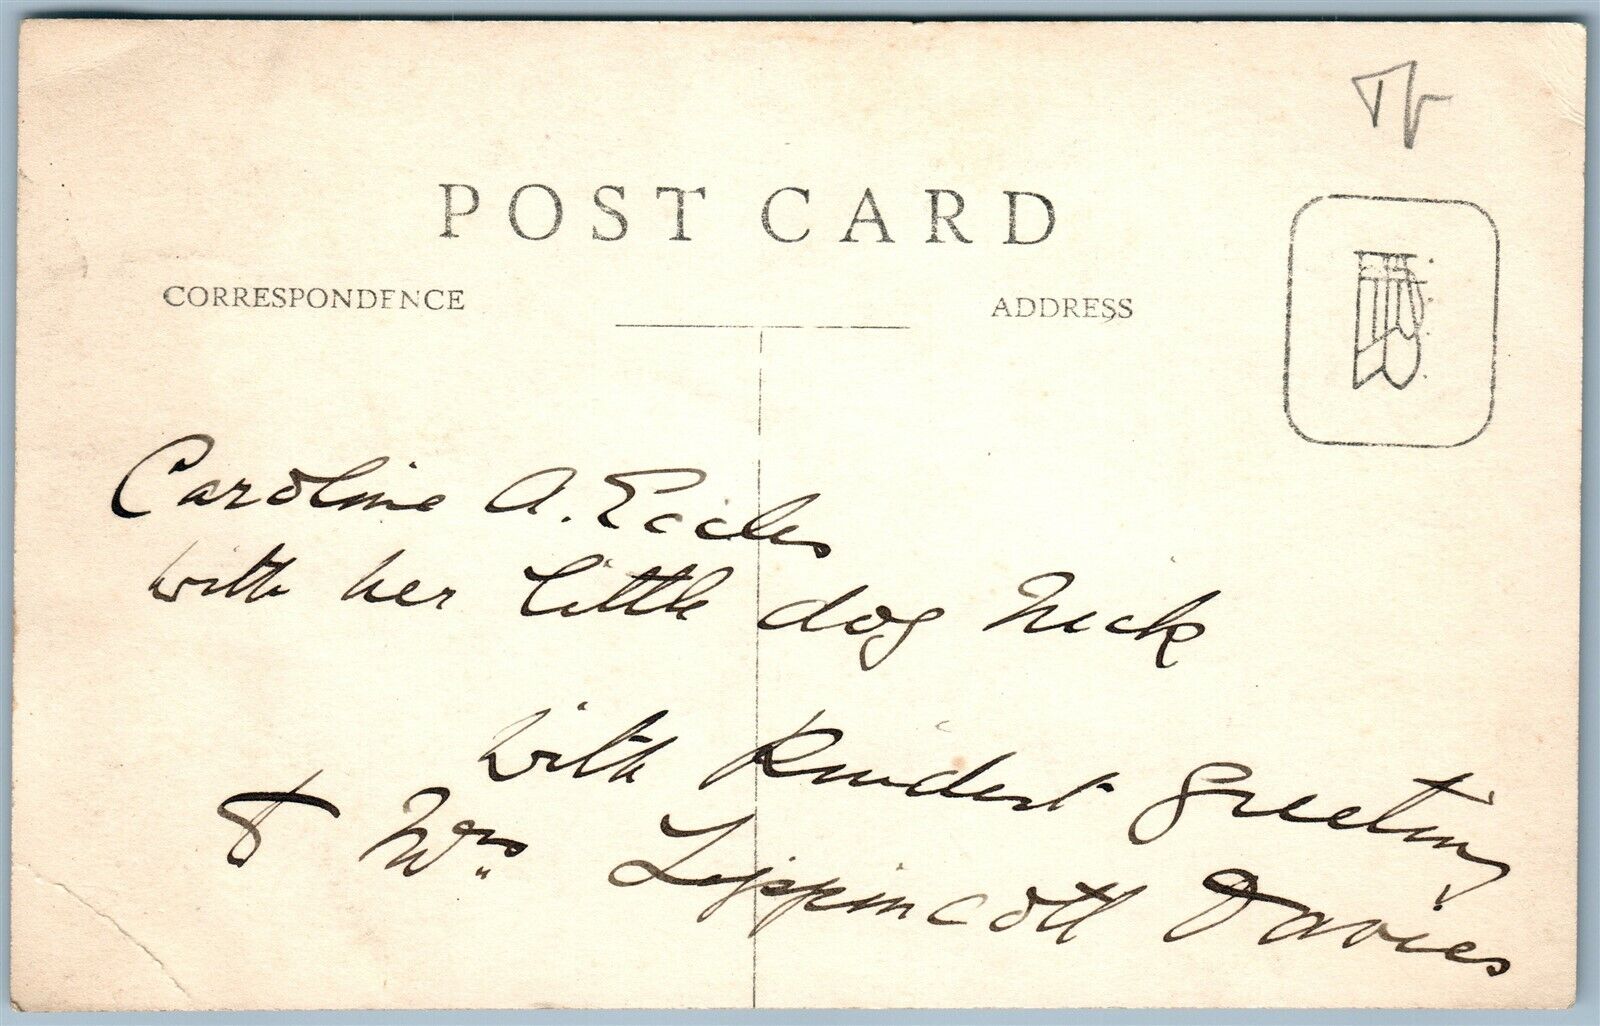 POST CARD
CORRESPONDENCE
ADDRESS
Caroline A. Eccles
with her little dog Nick
with kindest greeting
to Mrs. Lippincott Davies